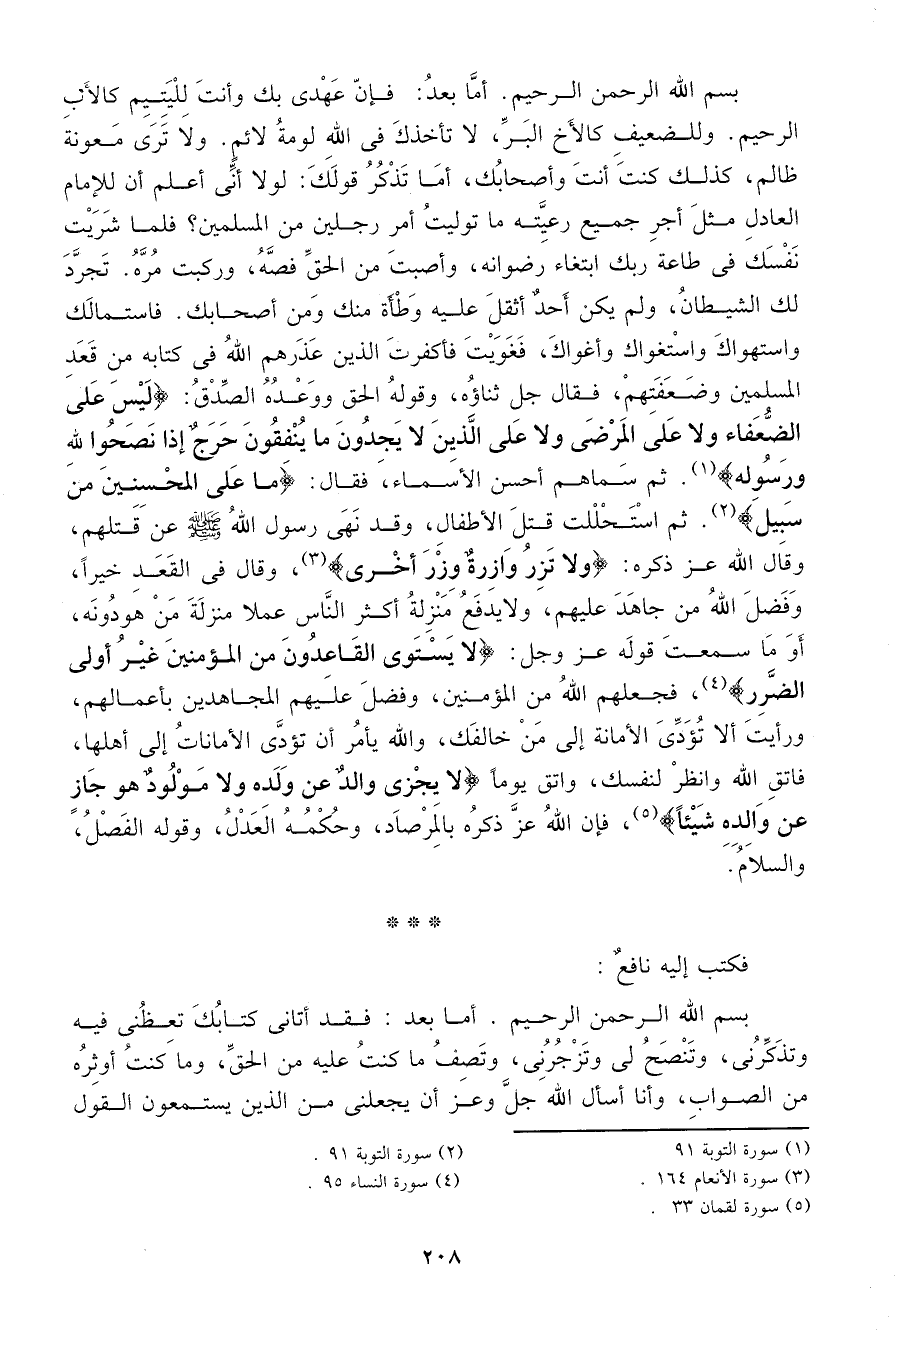 بسم الله الرحمن الرحيم. أمَّا بعدُ: فإنّ عَهْدى بك وأنتَ لليَتيم كالأب
الرحيم. وللضعيف كالأخ البَرِّ، لا تأخذكَ فى الله لومةُ لائم. ولا تَرَى مَعونة
ظالم، كذلك كنتَ أنتَ وأصحابك، أمَا تَذْكُرُ قولَكَ: لولا أنِّى أعلم أن للإمام
العادل مثلَ أجر جميع رعيَّته ما توليتُ أمر رجلين من المسلمين؟ فلما شَرَيْت
نَفْسَك فى طاعة ربك ابتغاء رضوانه، وأصبتَ من الحقِّ فَصَّه، وركبت مُرَّه. تجرَّدَ
لك الشيطانُ، ولم يكن أحدٌ أثقلَ عليه وَطْأَة منك ومَن أصحابك. فاستمالَكَ
واستهواكَ واستَغواك وأغواكَ، فَغَوَيْتَ فأكفرتَ الذين عَذَرَهم اللهُ فى كتابه من قَعَد
المسلمين وضَعَفَتهم، فقال جل ثناؤه، وقولهُ الحق ووَعْدُهُ الصِّدْقُ: ﴿لَيْسَ عَلى
الضُّعفاء ولا عَلى المَرْضَى ولا على الَّذينَ لا يَجدُونَ ما يُنْفقُونَ حَرَجٌ إذا نَصَحُوا لله
ورَسُوله﴾(١). ثم سَماهم أحسن الأسماء، فقال: ﴿ما عَلَى المحْسنينَ من
سَبيل﴾(٢). ثم استَحْلَلت قتلَ الأطفال، وقد نَهَى رسول اللهُ ﷺ عن قتلهم،
وقال الله عز ذكره: ﴿ولا تَزرُ وَازرةٌ وزْرَ أخْرى﴾(٣)، وقال فى القَعَد خيراً،
وَفَضلَ اللهُ من جاهَدَ عليهم، ولايدفَعُ مَنْزلةُ أكثر النَّاس عملا منزلةَ مَنْ هودُونَه،
أوَ مَا سمعتَ قولَه عز وجل: ﴿لا يَسْتَوى القَاعدُونَ من المؤمنينَ غَيْرُ أولى
الضَّرر﴾(٤)، فجعلهم اللهُ من المؤمنين، وفضلَ عليهم المجاهدين بأعمالهم،
ورأيتَ ألا تُؤَدِّىَ الأمانة إلى مَنْ خالفَكَ، والله يأمرُ أن تؤدَّى الأماناتُ إلى أهلها،
فاتق الله وانظرْ لنفسك، واتق يوماً ﴿لا يجْزى والدٌ عن وَلَده ولا مَوْلُودٌ هو جَاز
عن وَالده شَيْئاً﴾(٥)، فإن اللهُ عزَّ ذكرُه بالمرْصاد، وحُكْمُه العَدْلُ، وقوله الفَصْلُ،
والسلامُ.
* * *
فكتب إليه نافعٌ :
بسم الله الرحمن الرحيم . أما بعد : فقد أتانى كتابُكَ تعظُنى فيه
وتذكِّرُنى، وتَنْصَحُ لى وتَزْجُرُنى، وتَصفُ ما كنتُ عليه من الحقِّ، وما كنتُ أوثرُه
من الصواب، وأنا أسأل اللهَ جلَّ وعز أن يجعلنى من الذين يستمعون القول
(١) سورة التوبة ٩١
(٢) سورة التوبة ٩١ .
(٣) سورة الأنعام ١٦٤ .
(٤) سورة النساء ٩٥ .
(٥) سورة لقمان ٣٣ .
٢٠٨